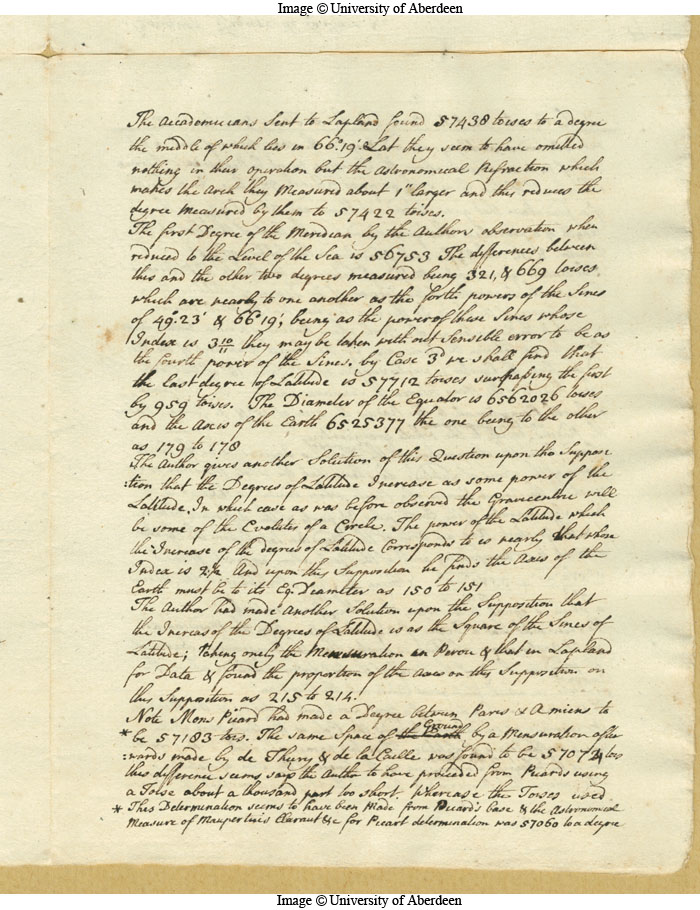 Image © University of Aberdeen
The Accademicians Sent to Lapland found 57438 toises to a degree
the middle of which lies in 66°.19' Lat they seem to have omitted
nothing in their operation but the Astronomical Refraction which
makes the Arch they Measured about 1" larger and this reduces the
degree Measured by them to 57422 toises.
The first Degree of the Meridian by the Authors observation when
reduced to the Level of the Sea is 56753 The differences between
this and the other two degrees measured being 321, & 669 toises,
which are nearly to one another as the forth powers of the Sines
of 49°.23' & 66°.19', being as the power of these Sines whose
Index is 3 10/11 they may be taken with out Sensible error to be as
the fourth power of the Sines. by Case 3d we shall find that
the Last degree of Latitude is 57712 toises surpassing the first
by 959 toises. The Diameter of the Equator is 6562026 toises
and the Axis of the Earth 6525377 the one being to the other
as 179 to 178
The Author gives another Solution of this Question upon the Suppose
:tion that the Degrees of Latitude Increase as some power of the
Latitude. In which case as was before observed the Gravicentre will
be some of the Evolutes of a Circle. The power of the Latitude which
the Increase of the degrees of Latitude Corresponds to is nearly that whose
Index is And upon this Supposition he finds the Axis of the
Earth must be to its Eq: Diameter as 150 to 151
The Author had made Another Solution upon the Supposition that
the Increas of the Degrees of Latitude is as the Square of the Sines of
Latitude; Taking onely the Mensuration in Perou & that in Lapland
for Data & found the proportion of the axes on this Supposition on
this Supposition as 215 to 214.
Note Mons Picard had made a Degree between Paris & Amiens to
* be 57183 tois. The same Space of the Earth Ground by a Mensuration after
:wards made by de Thury & de la Caille was found to be tois
this difference seems says the Author to have proceeded from Picards using
a Toise about a thousand part too short. Whereas the Toises used
* This Determination seems to have been Made from Picard's Base & the Astronomical
Measure of Maupertuis Claraut &c for Picart determination was 57060 to a degree
Image © University of Aberdeen